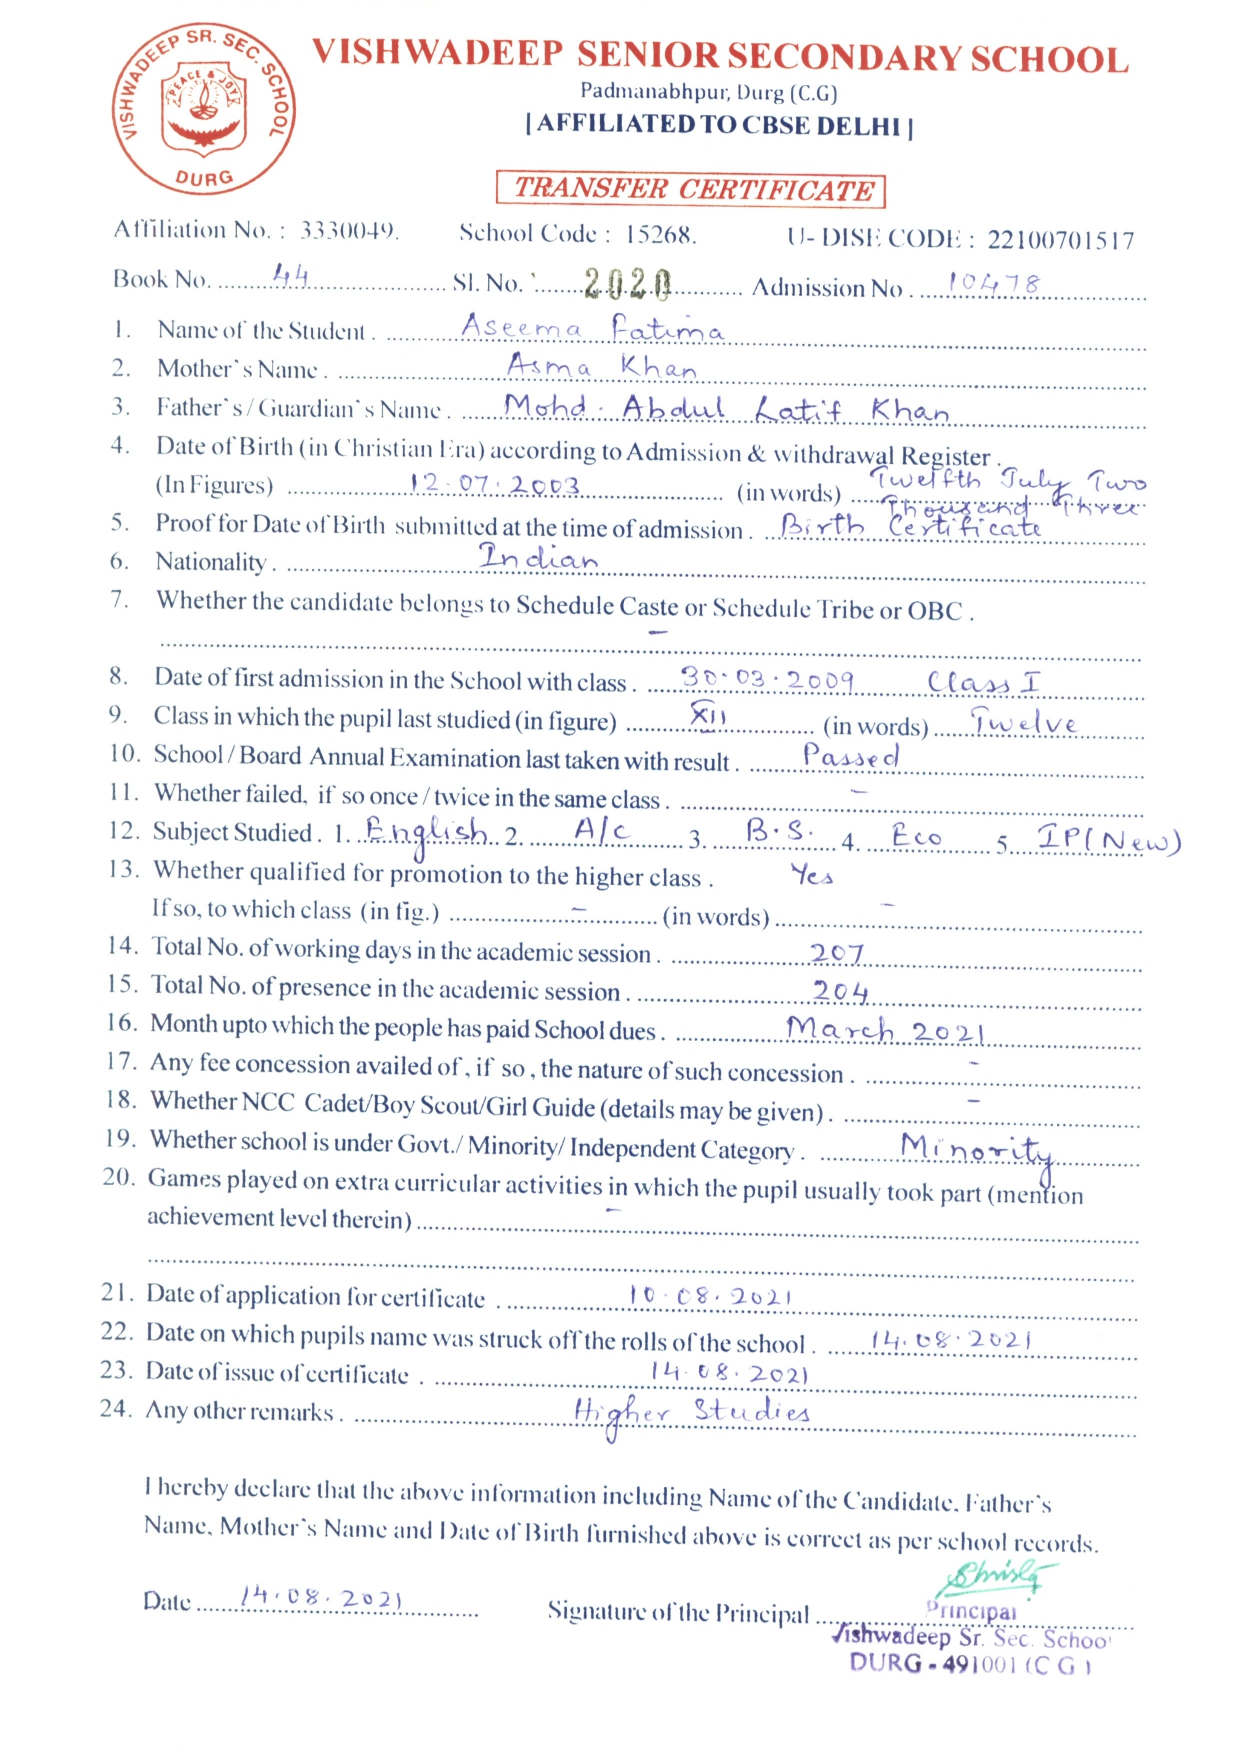 VISHWADEEP SR. SEC. SCHOOL
PEACE & JOY
DURG
VISHWADEEP SENIOR SECONDARY SCHOOL
Padmanabhpur, Durg (C.G)
[ AFFILIATED TO CBSE DELHI ]
TRANSFER CERTIFICATE
Affiliation No. : 3330049. School Code : 15268. U- DISE CODE : 22100701517
Book No. 44 Sl. No. 2020 Admission No . 10478
1. Name of the Student . Aseema Fatima
2. Mother`s Name . Asma Khan
3. Father`s / Guardian`s Name . Mohd. Abdul Latif Khan
4. Date of Birth (in Christian Era) according to Admission & withdrawal Register .
(In Figures) 12.07.2003 (in words) Twelfth July Two
Thousand Three
5. Proof for Date of Birth submitted at the time of admission . Birth Certificate
6. Nationality . Indian
7. Whether the candidate belongs to Schedule Caste or Schedule Tribe or OBC .
–
8. Date of first admission in the School with class . 30.03.2009 Class I
9. Class in which the pupil last studied (in figure) XII (in words) Twelve
10. School / Board Annual Examination last taken with result . Passed
11. Whether failed, if so once / twice in the same class . –
12. Subject Studied . 1. English 2. A/c 3. B.S. 4. Eco 5. IP(New)
13. Whether qualified for promotion to the higher class . Yes
If so, to which class (in fig.) – (in words) –
14. Total No. of working days in the academic session . 207
15. Total No. of presence in the academic session . 204
16. Month upto which the people has paid School dues . March 2021
17. Any fee concession availed of , if so , the nature of such concession . –
18. Whether NCC Cadet/Boy Scout/Girl Guide (details may be given) . –
19. Whether school is under Govt./ Minority/ Independent Category . Minority
20. Games played on extra curricular activities in which the pupil usually took part (mention
achievement level therein) –
21. Date of application for certificate . 10.08.2021
22. Date on which pupils name was struck off the rolls of the school . 14.08.2021
23. Date of issue of certificate . 14.08.2021
24. Any other remarks . Higher Studies
I hereby declare that the above information including Name of the Candidate, Father`s
Name, Mother`s Name and Date of Birth furnished above is correct as per school records.
Date 14.08.2021 Signature of the Principal
Principal
Vishwadeep Sr. Sec. School
DURG - 491001 (C G )